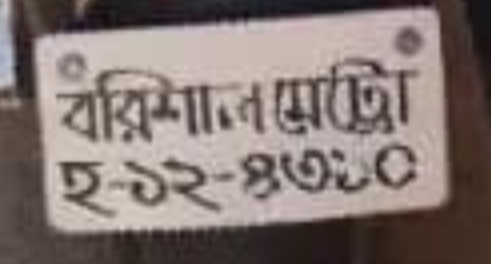 বরিশাল মেট্রো
হ-১২-৪৩৮০